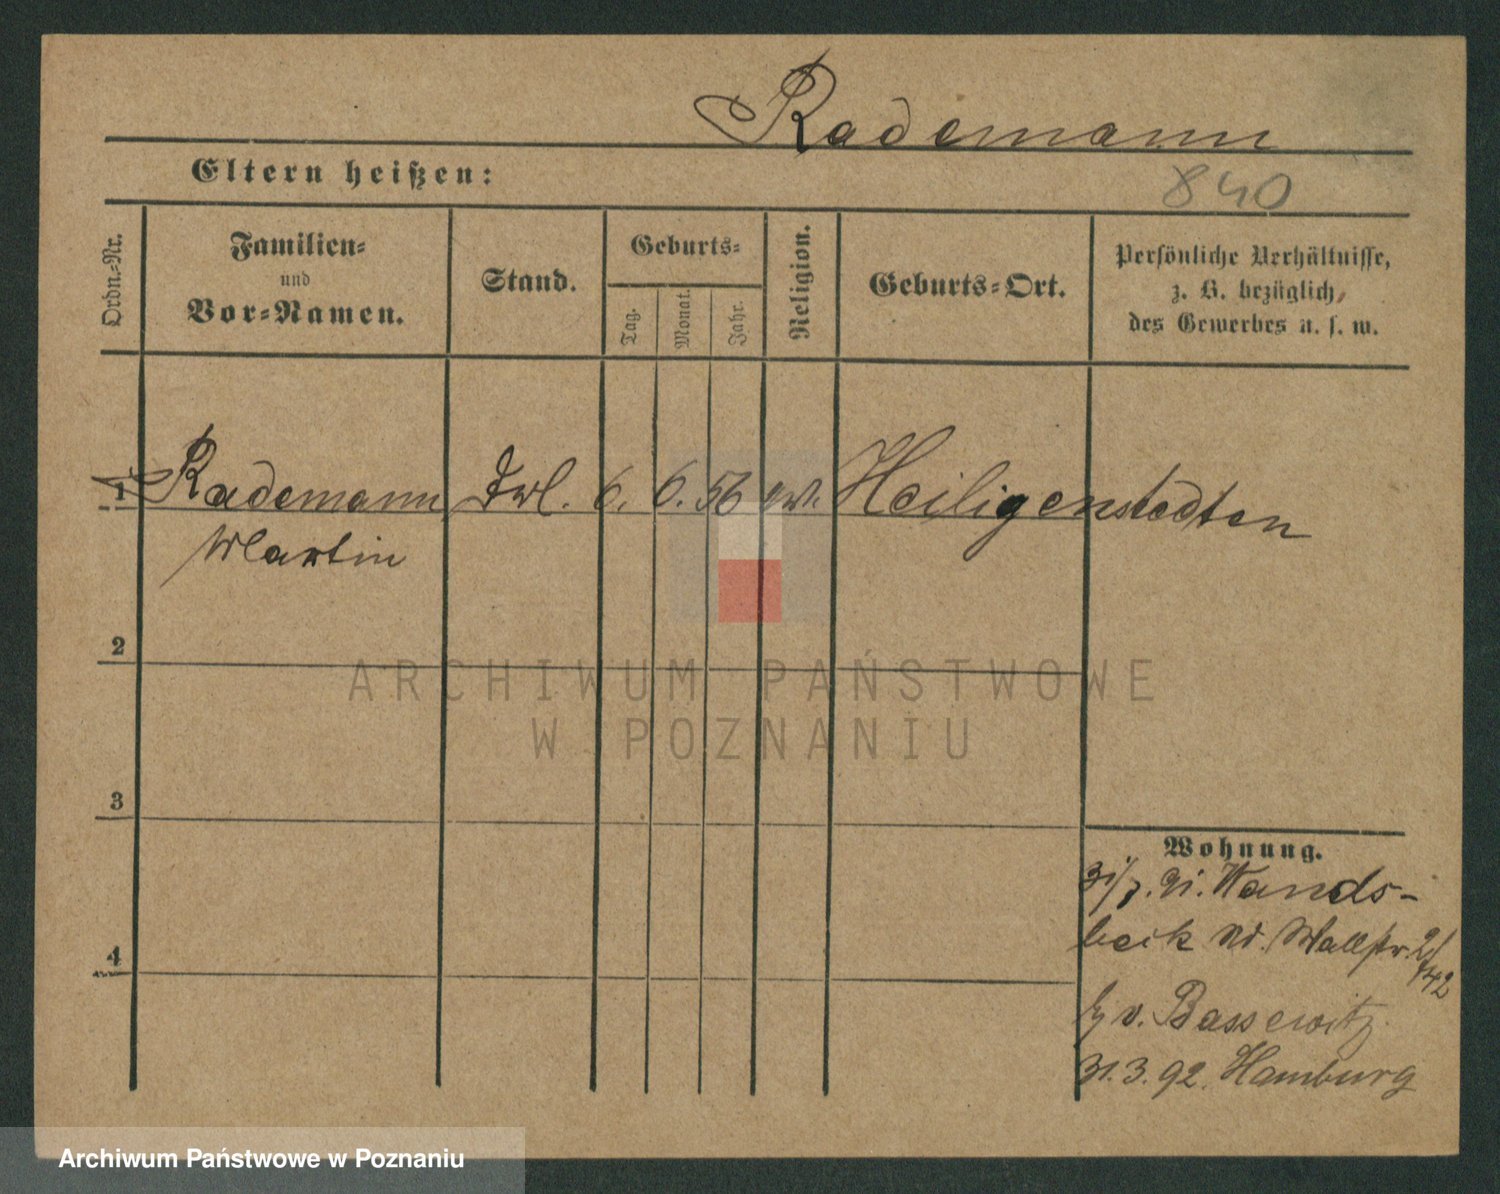 Rademann
Eltern heißen:
840
Ordn.-Nr.
Familien-
und
Vor-Namen.
Stand.
Geburts-
Tag.
Monat.
Jahr.
Religion.
Geburts-Ort.
Persönliche Verhältnisse,
z. B. bezüglich
des Gewerbes u. s. w.
1 Rademann Frl. 6. 6. 56 ev. Heiligenstedten
Martin
2
3
4
Wohnung.
91. Wands-
beck Wallstr.
b/ v. Bassewitz
31.3.92. Hamburg
ARCHIWUM PAŃSTWOWE
W POZNANIU
Archiwum Państwowe w Poznaniu